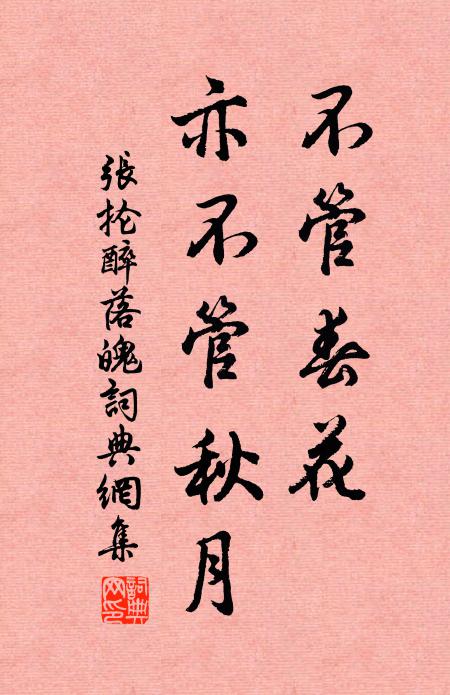 不管春花
亦不管秋月
張掄醉落魄詞典網集
詞典網印